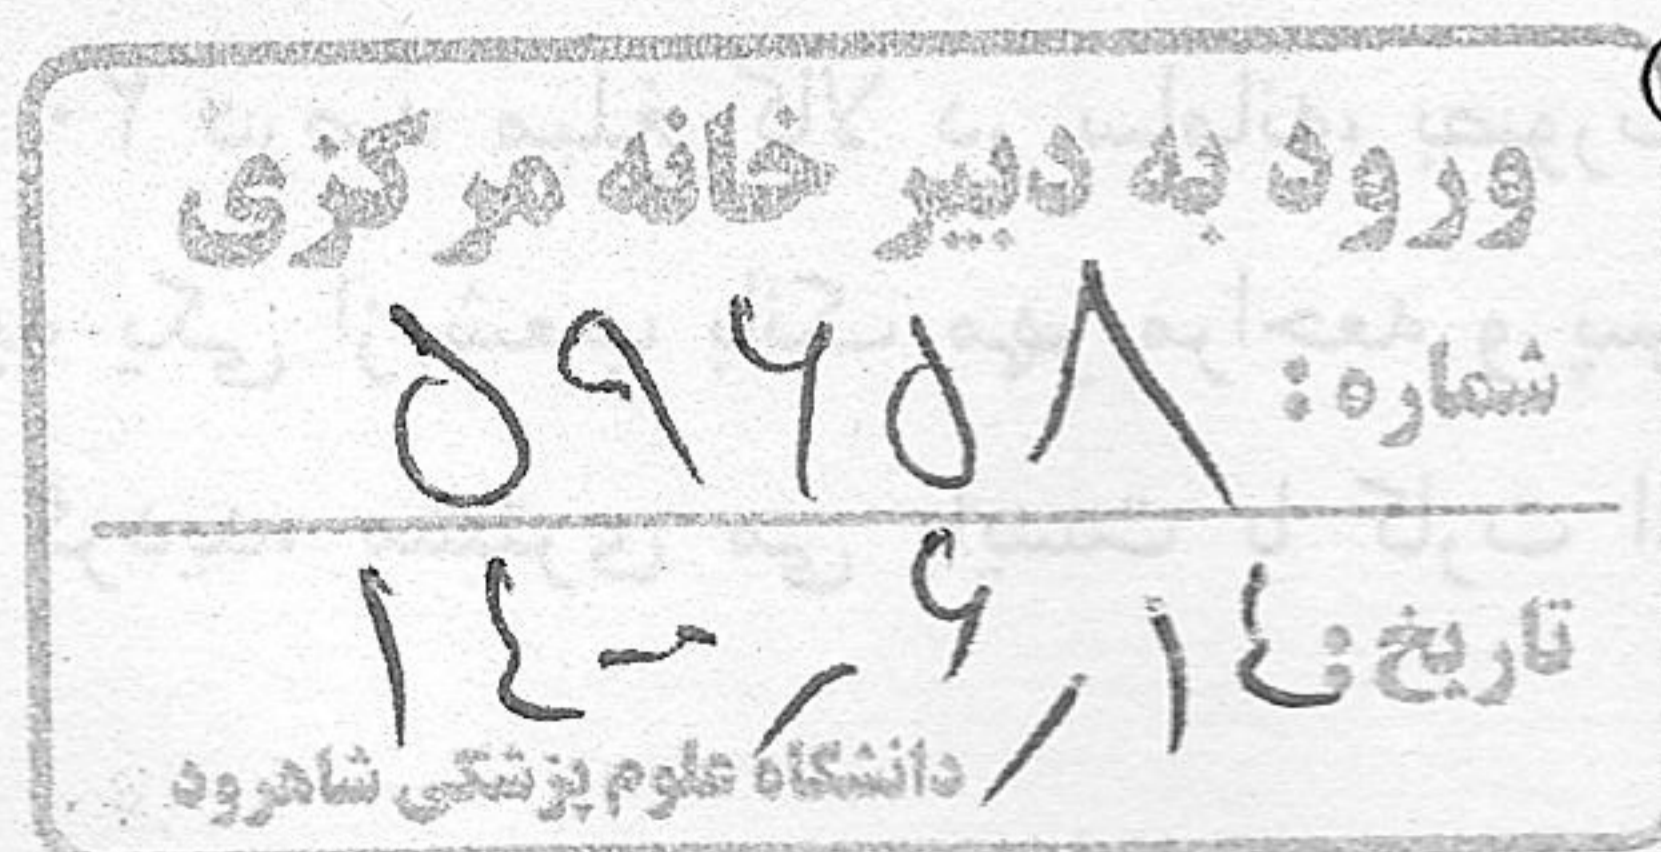 ورود به دبیر خانه مرکزی
شماره: ۵۹۶۵۸
تاریخ: ۱۴۰۰/۶/۱۴
دانشگاه علوم پزشکی شاهرود